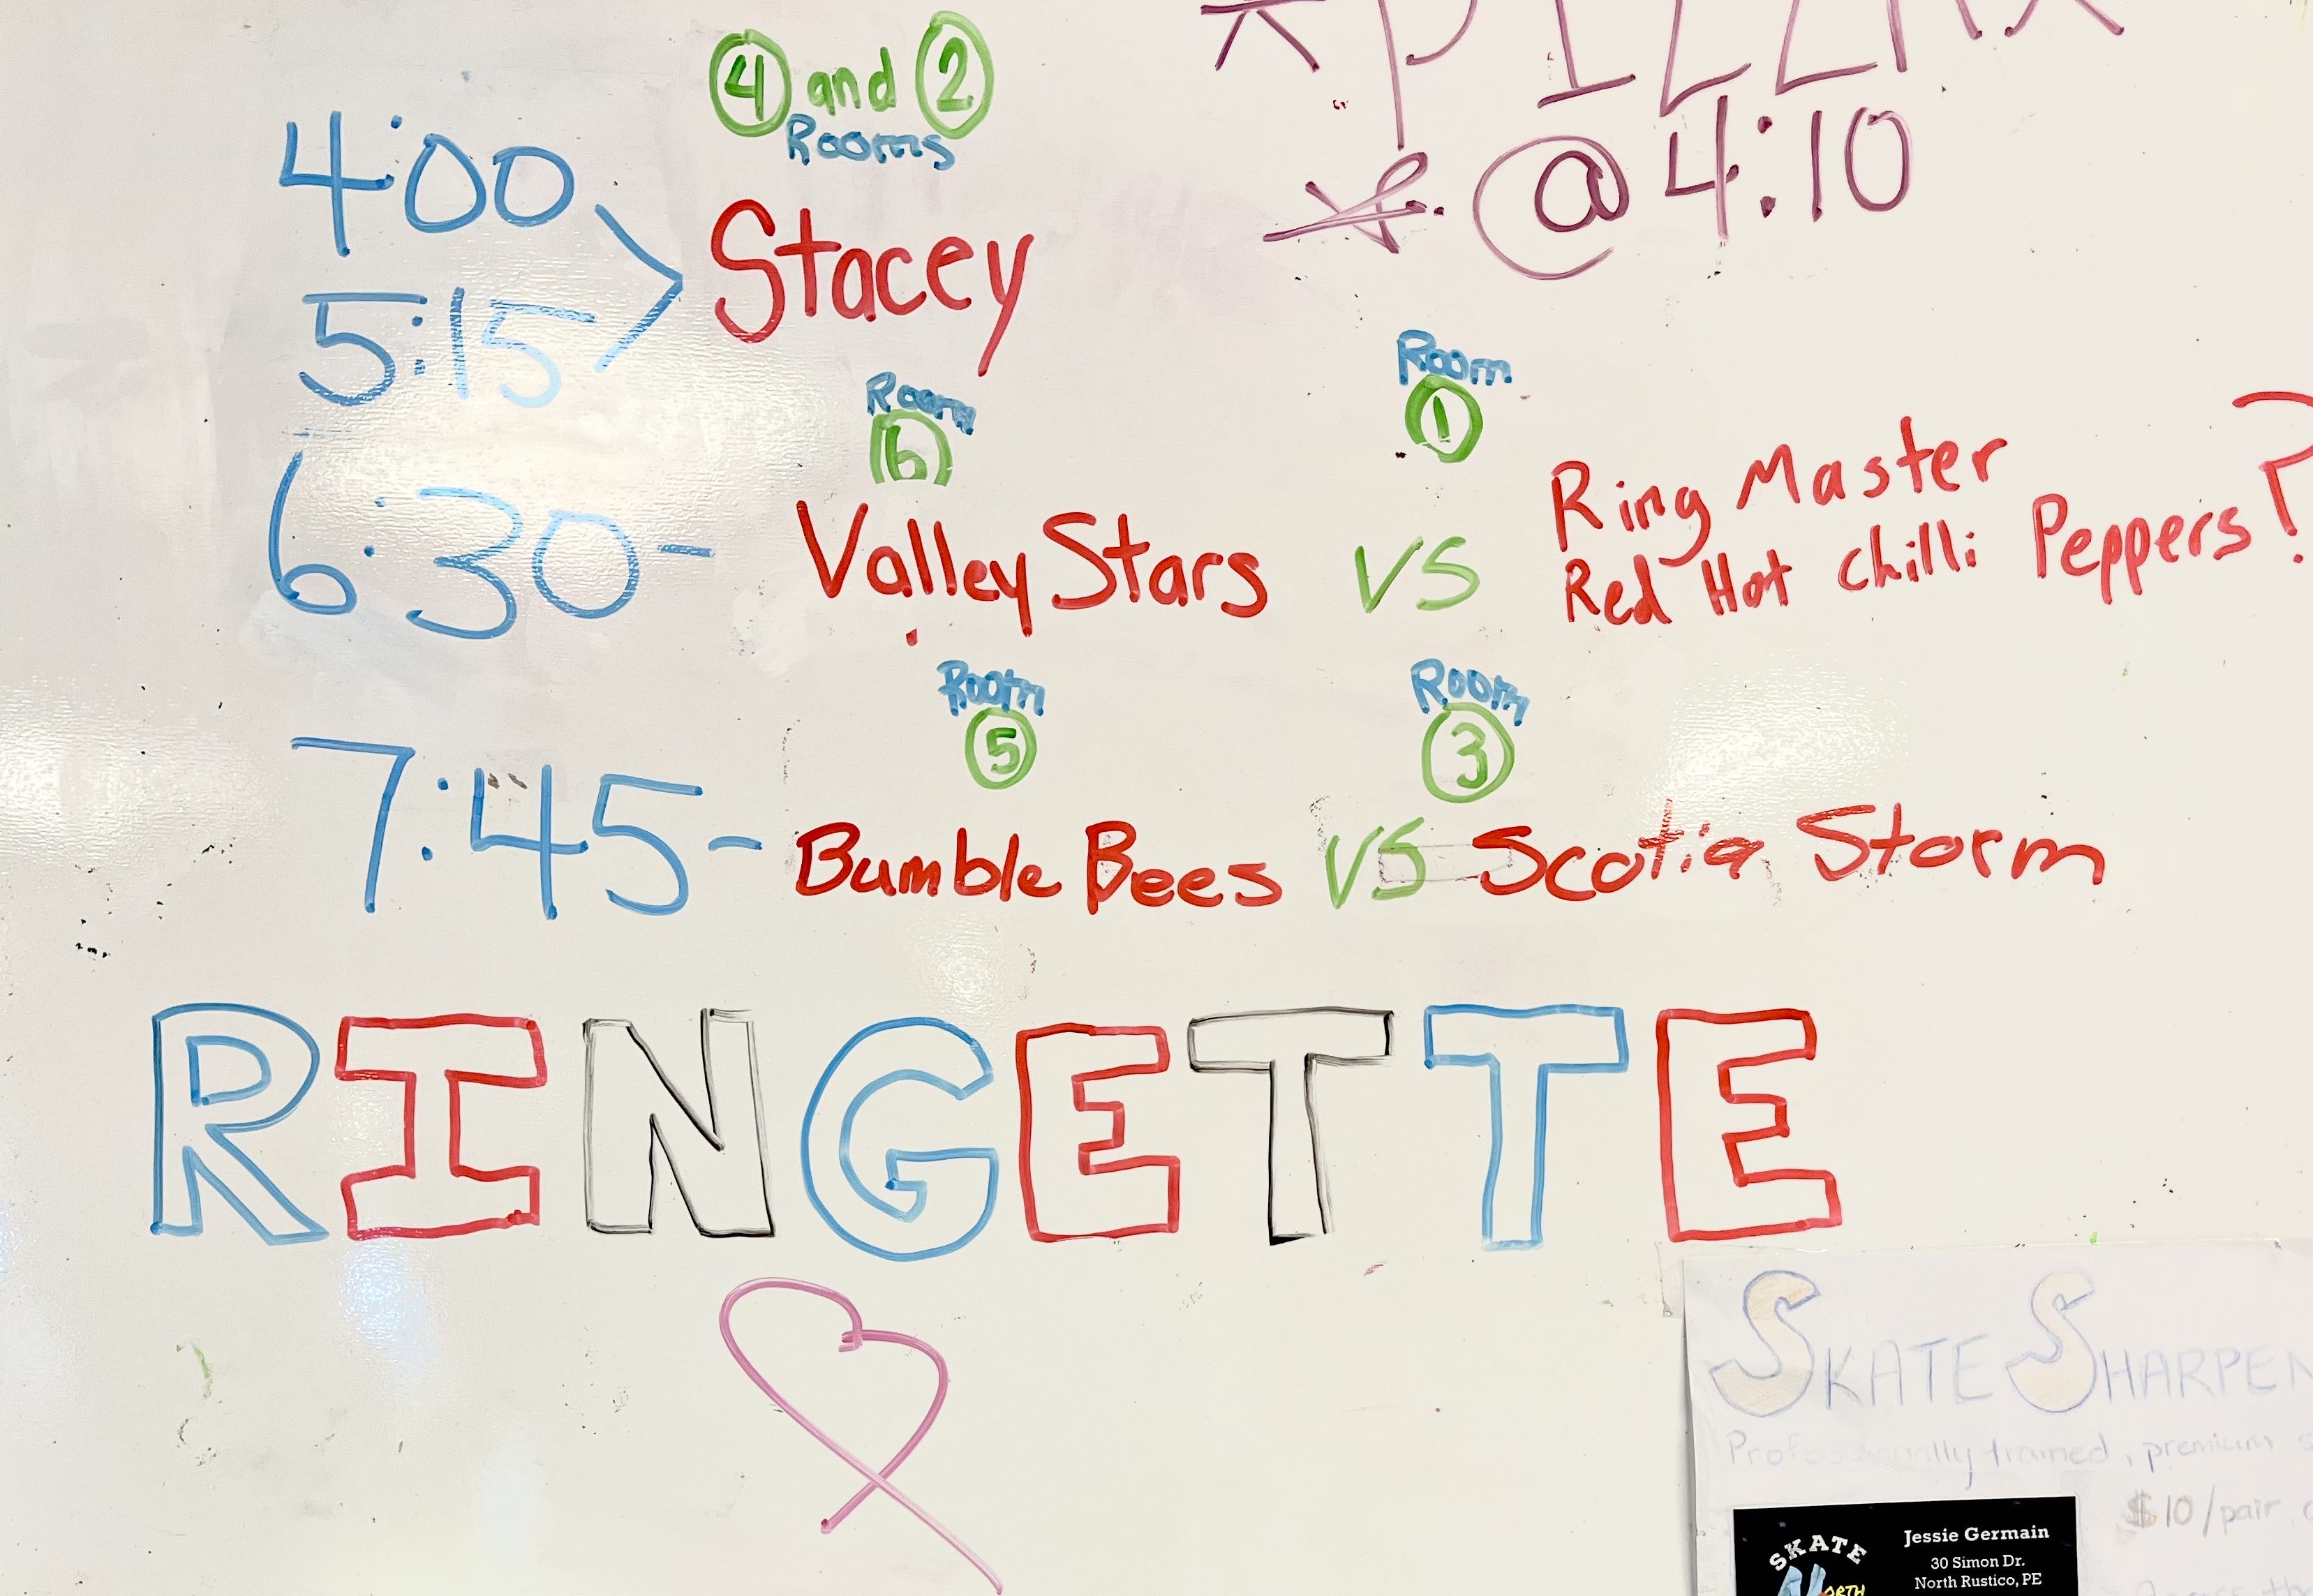 *PIZZA*
@ 4:10
4 and 2
Rooms
4:00
5:15
Stacey
Room
6
Room
1
6:30-
Valley Stars
VS
Ring Master
Red Hot Chilli Peppers?
Room
5
Room
3
7:45-
Bumble Bees VS Scotia Storm
RINGETTE
SKATE SHARPEN
Professionally trained, premium s
$10/pair,
SKATE
NORTH
Jessie Germain
30 Simon Dr.
North Rustico, PE